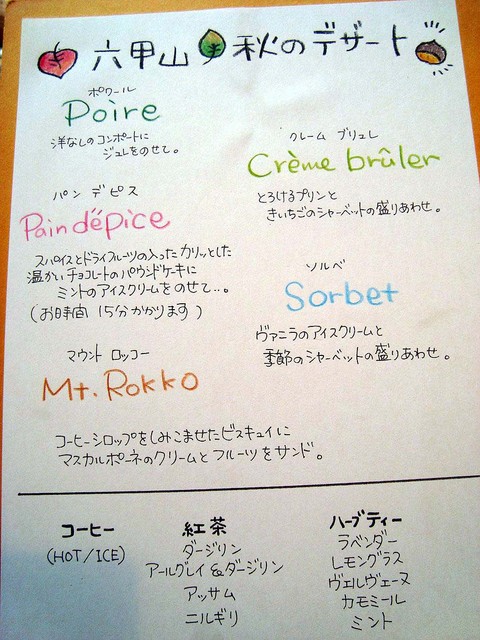 六甲山 秋のデザート
ポワール
Poire
洋なしのコンポートに
ジュレをのせて。
クレーム ブリュレ
Crème brûler
とろけるプリンと
きいちごのシャーベットの盛りあわせ。
パン デピス
Pain dépice
スパイスとドライフルーツの入ったカリッとした
温かいチョコレートのパウンドケーキに
ミントのアイスクリームをのせて…。
(お時間 15分かかります)
ソルベ
Sorbet
ヴァニラのアイスクリームと
季節のシャーベットの盛りあわせ。
マウント ロッコー
Mt. Rokko
コーヒーシロップをしみこませたビスキュイに
マスカルポーネのクリームとフルーツをサンド。
コーヒー
(HOT/ICE)
紅茶
ダージリン
アールグレイ&ダージリン
アッサム
ニルギリ
ハーブティー
ラベンダー
レモングラス
ヴェルヴェーヌ
カモミール
ミント